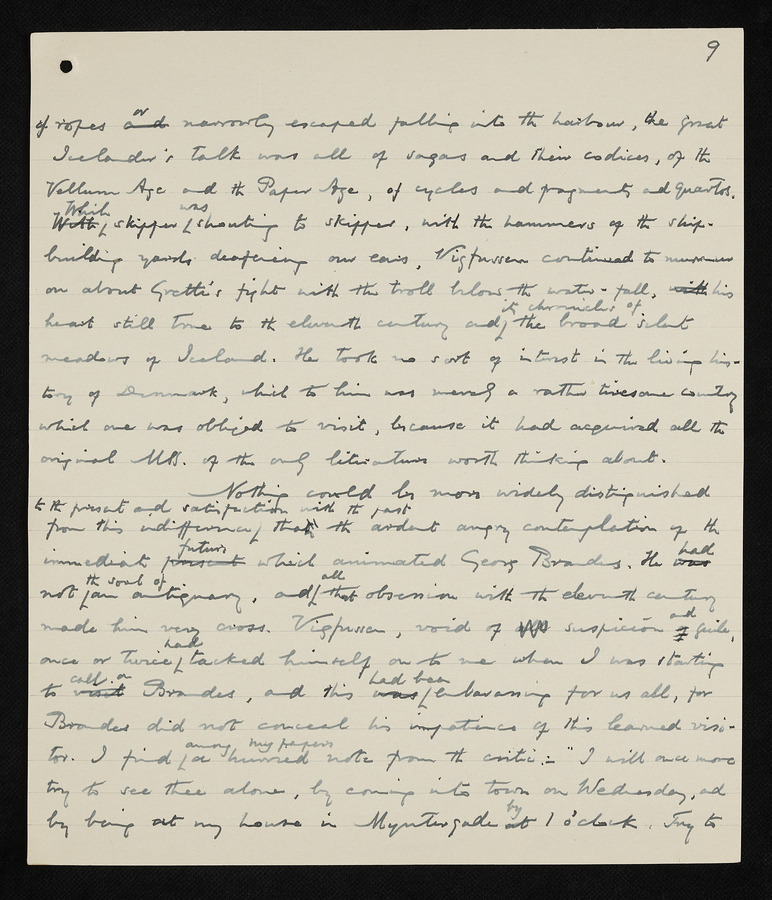 9
of ropes or and narrowly escaped falling into the harbour, the great
Icelander's talk was all of sagas and their codices, of the
Vellum Age and the Paper Age, of cycles and fragments and quartos.
While was
With skipper shouting to skipper, with the hammers of the ship-
building yards deafening our ears, Vigfussen continued to murmur
on about Gretti's fight with the troll below the water-fall, with his
its chronicles of
heart still true to the eleventh century and the broad silent
meadows of Iceland. He took no sort of interest in the living his-
tory of Denmark, which to him was merely a rather tiresome country
which one was obliged to visit, because it had acquired all the
original MSS. of the only literature worth thinking about.
Nothing could be more widely distinguished
to the present and satisfaction with the past
from this indifference than the ardent angry contemplation of the
future had
immediate present which animated Georg Brandes. He was
the soul of all
not an antiquary, and that obsession with the eleventh century
and
made him very cross. Vigfussen, void of suspicion or guile,
had
once or twice tacked himself on to me when I was starting
call on had been
to visit Brandes, and this was embarassing for us all, for
Brandes did not conceal his impatience of this learned visi-
among my papers
tor. I find a hurried note from the critic:- "I will once more
try to see thee alone, by coming into town on Wednesday, and
by
by being at my house in Myntergade at 1 o'clock. Try to